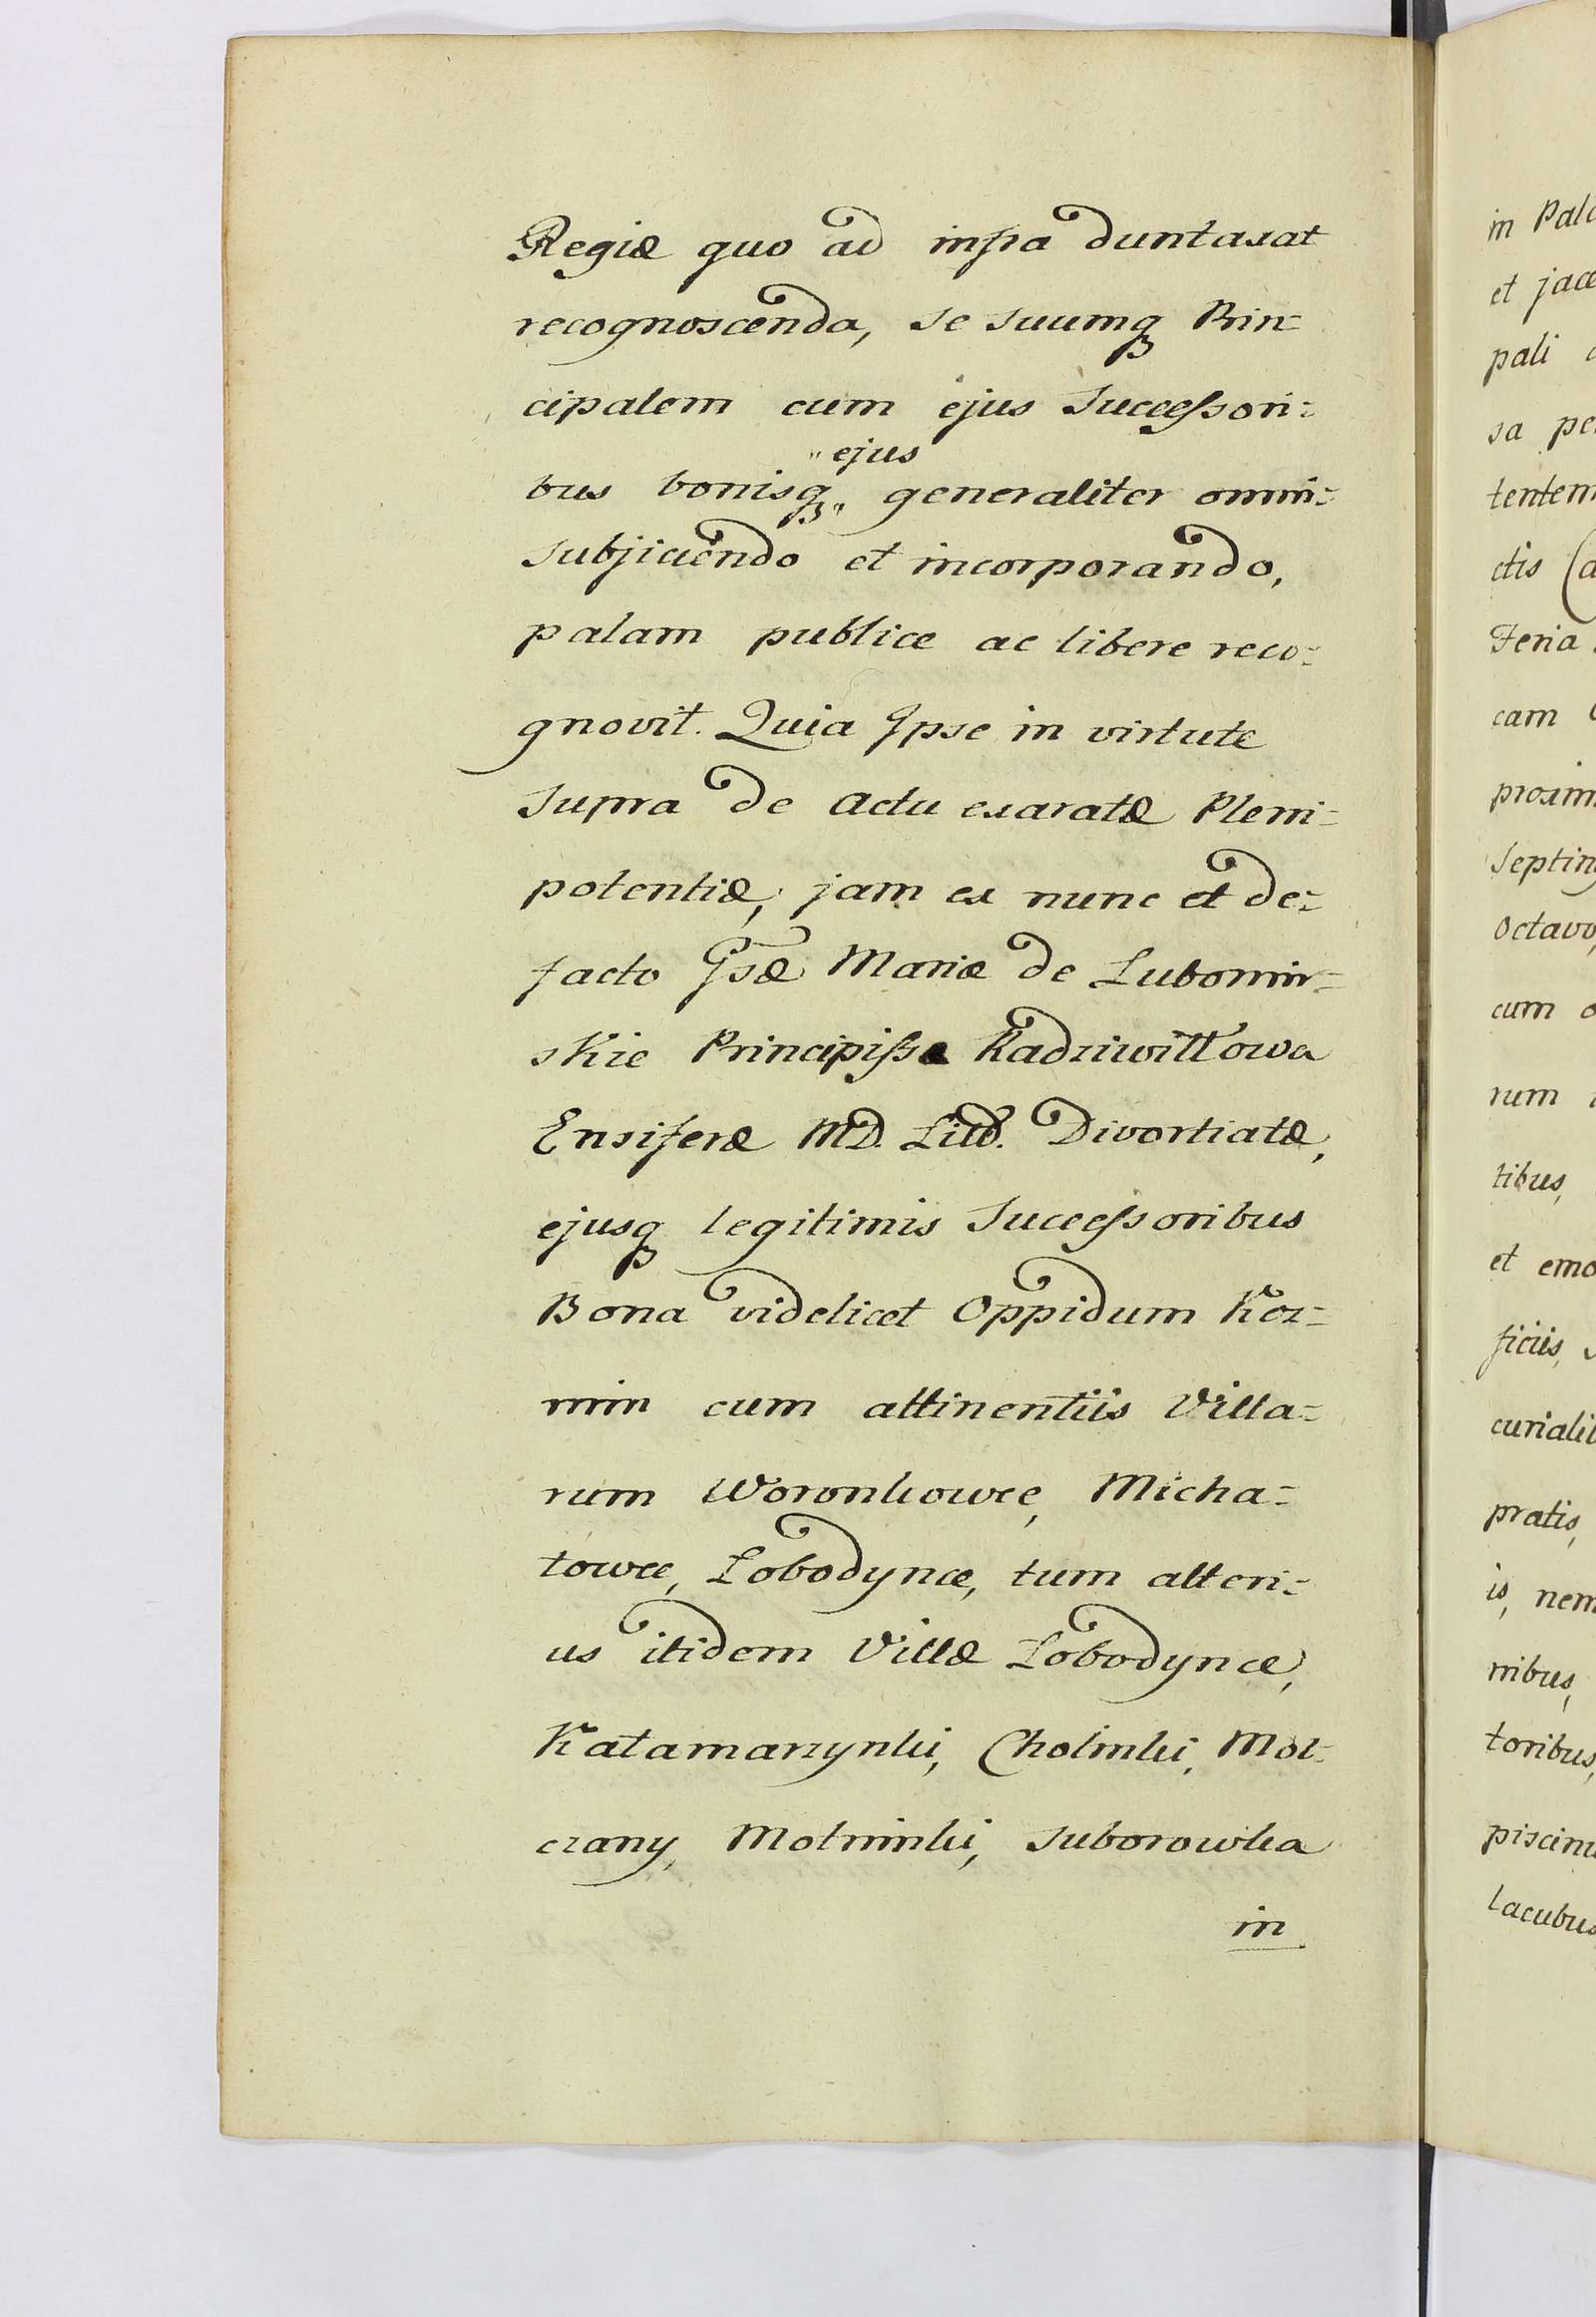 Regiæ quo ad infra duntaxat
recognoscenda, se suumq Prin=
cipalem cum ejus Successori=
"ejus
bus bonisq" generaliter omni=
subjiciendo et incorporando,
palam publice ac libere reco=
gnovit. Quia Ipse in virtute
supra de actu exaratæ Pleni=
potentiæ, jam ex nunc et de=
facto Gsæ Mariæ de Lubomir=
skie Principissæ Radziwiłłowa
Ensiferæ MD. Litt. Divortiatæ,
ejusq legitimis Successoribus
Bona videlicet Oppidum Koz=
min cum attinentiis Villa=
rum Woronkowce, Micha=
łowce, Łobodynce, tum alteri=
us itidem Villæ Łobodynce,
Katamarzynki, Cholinki, Moł=
czany, Motninki, Suborowka
in
in Pal
et jace
pali
sa pe
tentem
ctis (a
Feria
cam
proxim
Septing
Octavo,
cum
rum
tibus,
et emo
ficiis,
curialib
pratis,
is, nem
nibus,
toribus,
piscinis
lacubus